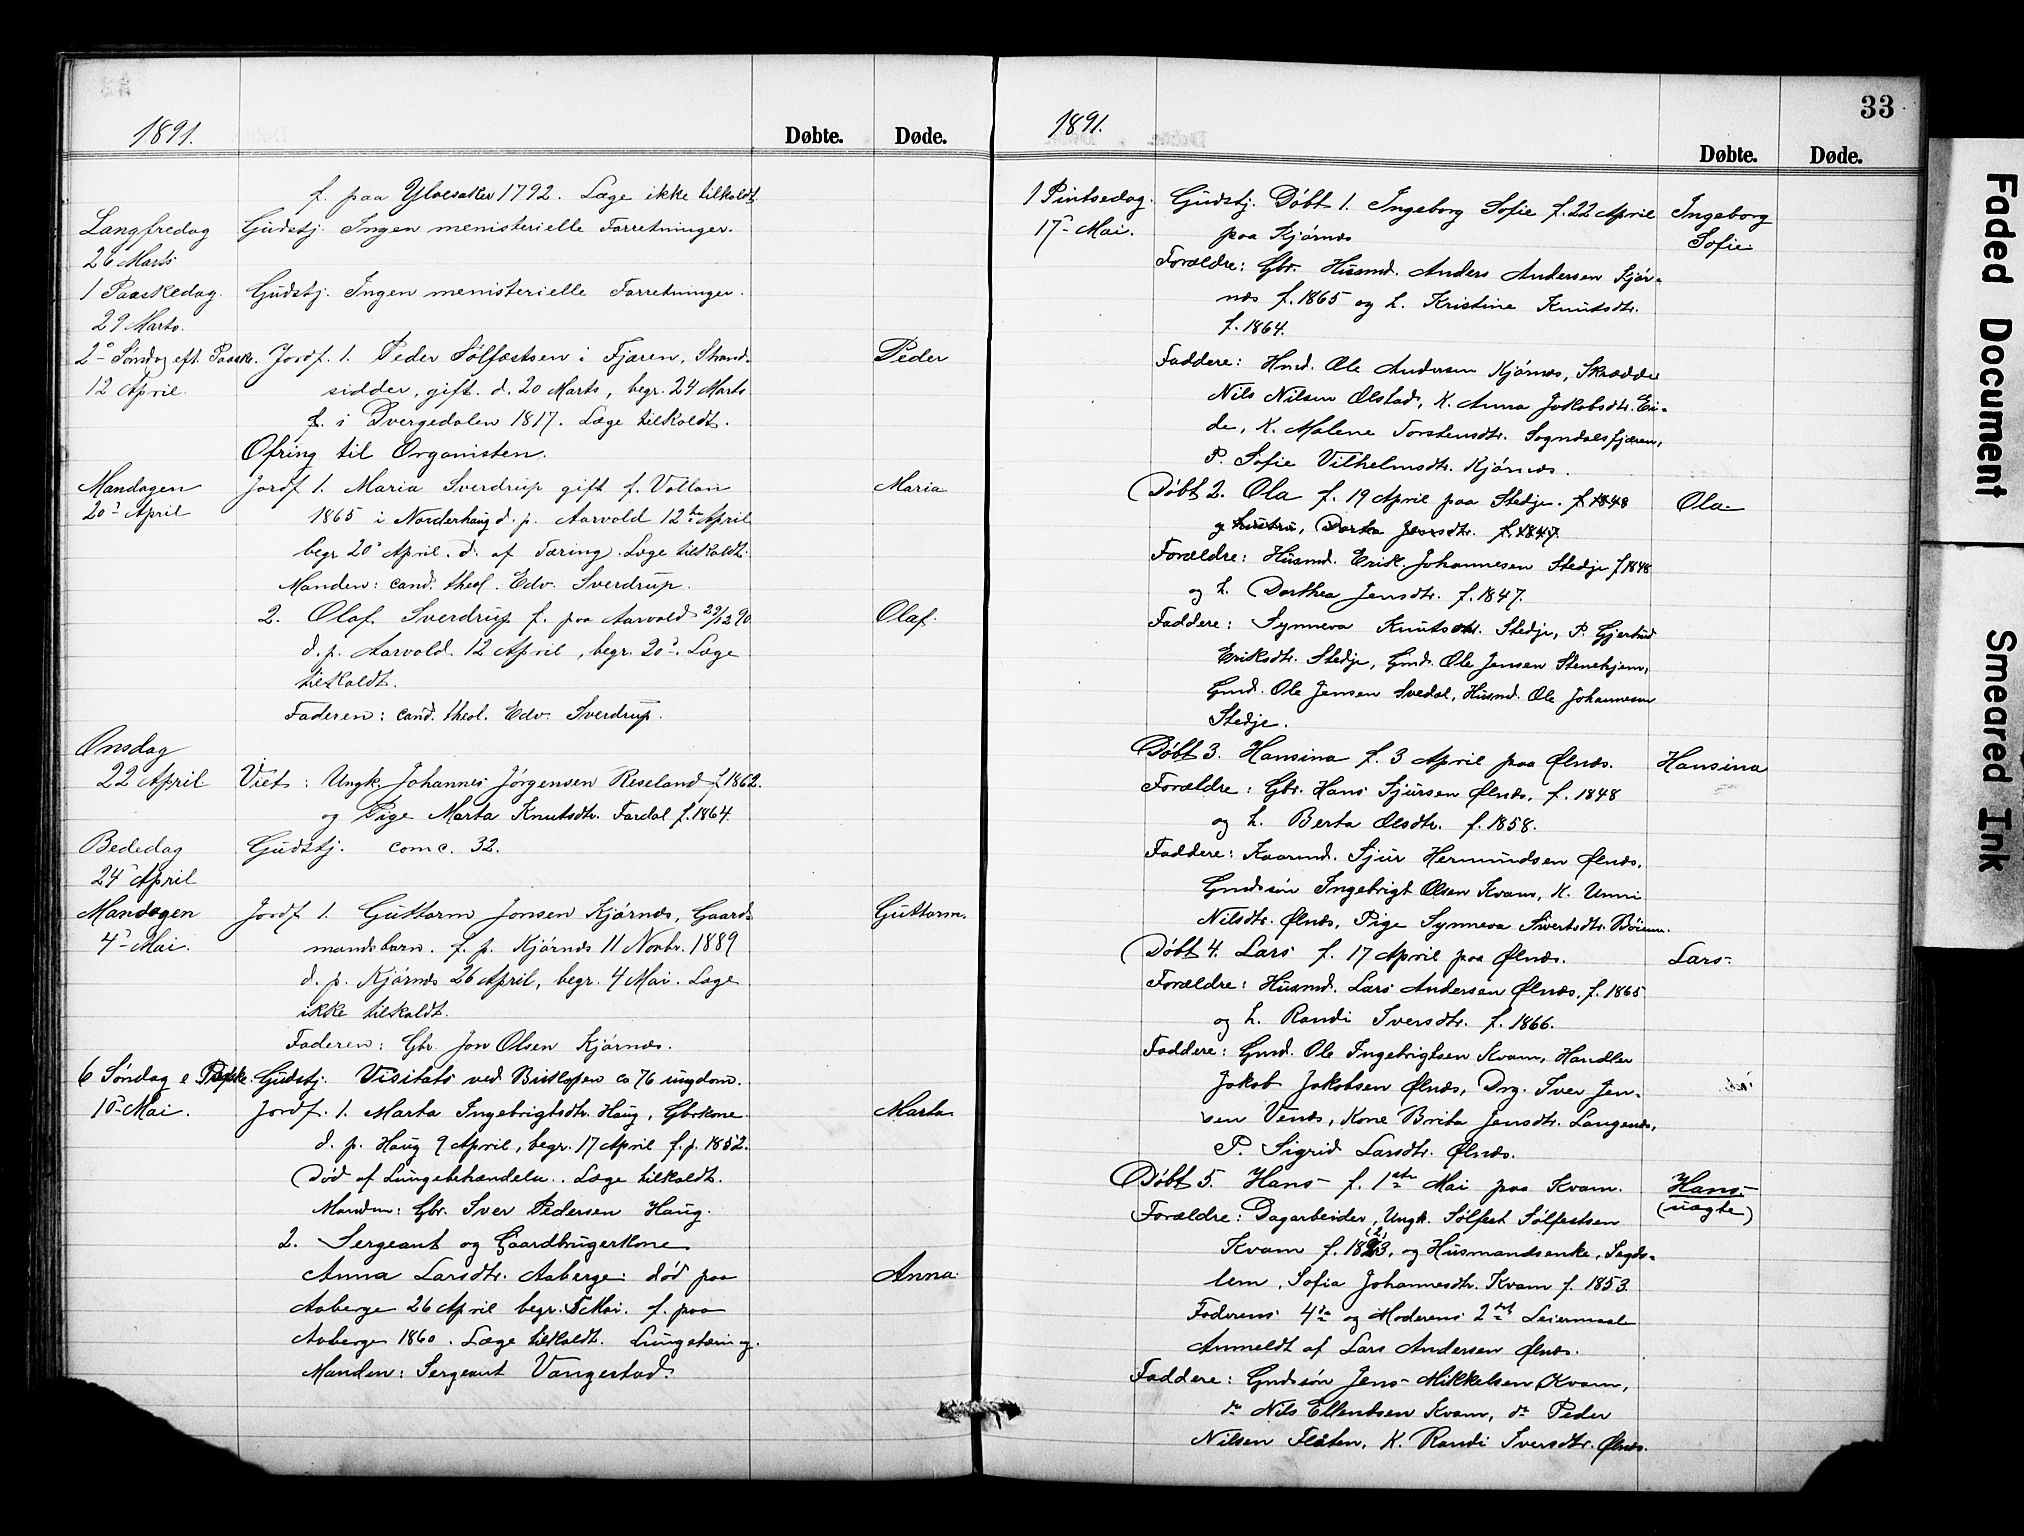 1891.
Døbte.
Døde.
f. paa Ylvesaker 1792. Læge ikke tilkaldt.
Langfredag Gudstj. Ingen menisterielle Forretninger.
26 Marts
1 Paaskedag. Gudstj. Ingen menisterielle Forretninger.
29 Marts.
2den Søndag eft. Paask. Jordf. 1. Peder Sølfestsen i Fjæren, Strand- Peder
12 April. sidder, gift. d. 20 Marts, begr. 24 Marts
f. i Dvergedalen 1817. Læge tilkaldt.
Ofring til Organisten.
Mandagen Jordf 1. Maria Sverdrup gift f. Vollan Maria
20de April 1865 i Norderhaug d. p. Aarvold 12te April
begr 20de April. d. af Tæring. Læge tilkaldt.
Manden: cand. theol. Edv. Sverdrup.
2. Olaf Sverdrup f. paa Aarvold 29/12 90 Olaf.
d. p. Aarvold 12 April, begr. 20de. Læge
tilkaldt.
Faderen: cand. theol. Edv. Sverdrup.
Onsdag
22 April Viet: Ungk. Johannes Jørgensen Reseland f 1862.
og Pige Marta Knutsdtr. Fardal f. 1864.
Bededag Gudstj. comc. 32.
24 April
Mandagen Jordf 1. Guttorm Jonsen Kjørnes, Gaard- Guttorm.
4de Mai. mandsbarn. f. p. Kjørnes 11 Novbr. 1889
d. p. Kjørnes 26 April, begr. 4 Mai. Læge
ikke tilkaldt.
Faderen: Gbr. Jon Olsen Kjørnes.
6 Søndag e Paaske. Gudstj. Visitats ved Biskopen co 76 ungdom.
10de Mai. Jordf. 1. Marta Ingebrigtsdtr. Haug, Gbrkone Marta
d. p. Haug 9 April, begr. 17 April f. p. 1852.
Død af Lungebetændelse. Læge tilkaldt.
Manden: Gbr. Iver Pedersen Haug.
2. Sergeant og Gaardbrugerkone
Anna Larsdtr. Aaberge: død paa Anna
Aaberge 26 April begr. 5 Mai. f. paa
Aaberge 1860. Læge tilkaldt. Lungetæring.
Manden: Sergeant Vangestad.
33
1891.
Døbte.
Døde.
1 Pintsedag. Gudstj. Døbt 1. Ingeborg Sofie f. 22 April Ingeborg
17de Mai. paa Kjørnes Sofie
Forældre: Gbr. Husmd. Anders Andersen Kjør-
nes f. 1865 og h. Kristine Knutsdtr.
f. 1864.
Faddere: Hmd. Ole Andersen Kjørnes, Skrædder
Nils Nilsen Ølstad, K. Anna Jakobsdtr. Ei-
de, K. Malene Torstensdtr. Sogndalsfjæren,
P. Sofie Vilhelmsdtr. Kjørnes.
Døbt 2. Ola f. 19 April paa Stedje. f. 1848 Ola
og hustru, Dorthea Jensdtr. f. 1847.
Forældre: Husmd. Erik Johannesen Stedje f 1848
og h. Dorthea Jensdtr. f. 1847.
Faddere: Synneva Knutsdtr. Stedje, P. Gjertrud
Eriksdtr. Stedje, Gmd. Ole Jensen Stenehjem,
Gmd. Ole Jensen Svedal, Husmd. Ole Johannesen
Stedje.
Døbt 3. Hansina f. 3 April paa Ølnes. Hansina
Forældre: Gbr. Hans Sjursen Ølnes, f. 1848
og h. Berta Olsdtr. f. 1858.
Faddere: Kaarmd. Sjur Hermundsen Ølnes,
Gmdssøn Ingebrigt Olsen Kvam, K. Unni
Nilsdtr. Ølnes, Pige Synneva Sivertsdtr. Bøium.
Døbt 4. Lars f. 17 April paa Ølnes. Lars
Forældre: Husmd. Lars Andersen Ølnes, f. 1865
og h. Randi Iversdtr. f. 1866.
Faddere: Gmd. Ole Ingebrigtsen Kvam, Handler
Jakob Jakobsen Ølnes, Drg. Iver Jen-
sen Venes, Kone Brita Jensdtr. Langenes,
P. Sigrid Larsdtr. Ølnes.
Døbt 5. Hans f. 1ste Mai paa Kvam. Hans
Forældre: Dagarbeider, Ungk. Sølfest Sølfestsen (uægte)
Kvam f. 1863, og Husmandsenke, Legds-
lem, Sofia Johannesdtr. Kvam f. 1853.
Faderens 4de og Moderens 2det Leiermaal
Anmeldt af Lars Andersen Ølnes.
Faddere: Gmdssøn Jens Mikkelsen Kvam,
do Nils Ellendsen Kvam, do Peder
Nilsen Flaten, K. Randi Iversdtr. Ølnes.
Faded Document
Smeared Ink